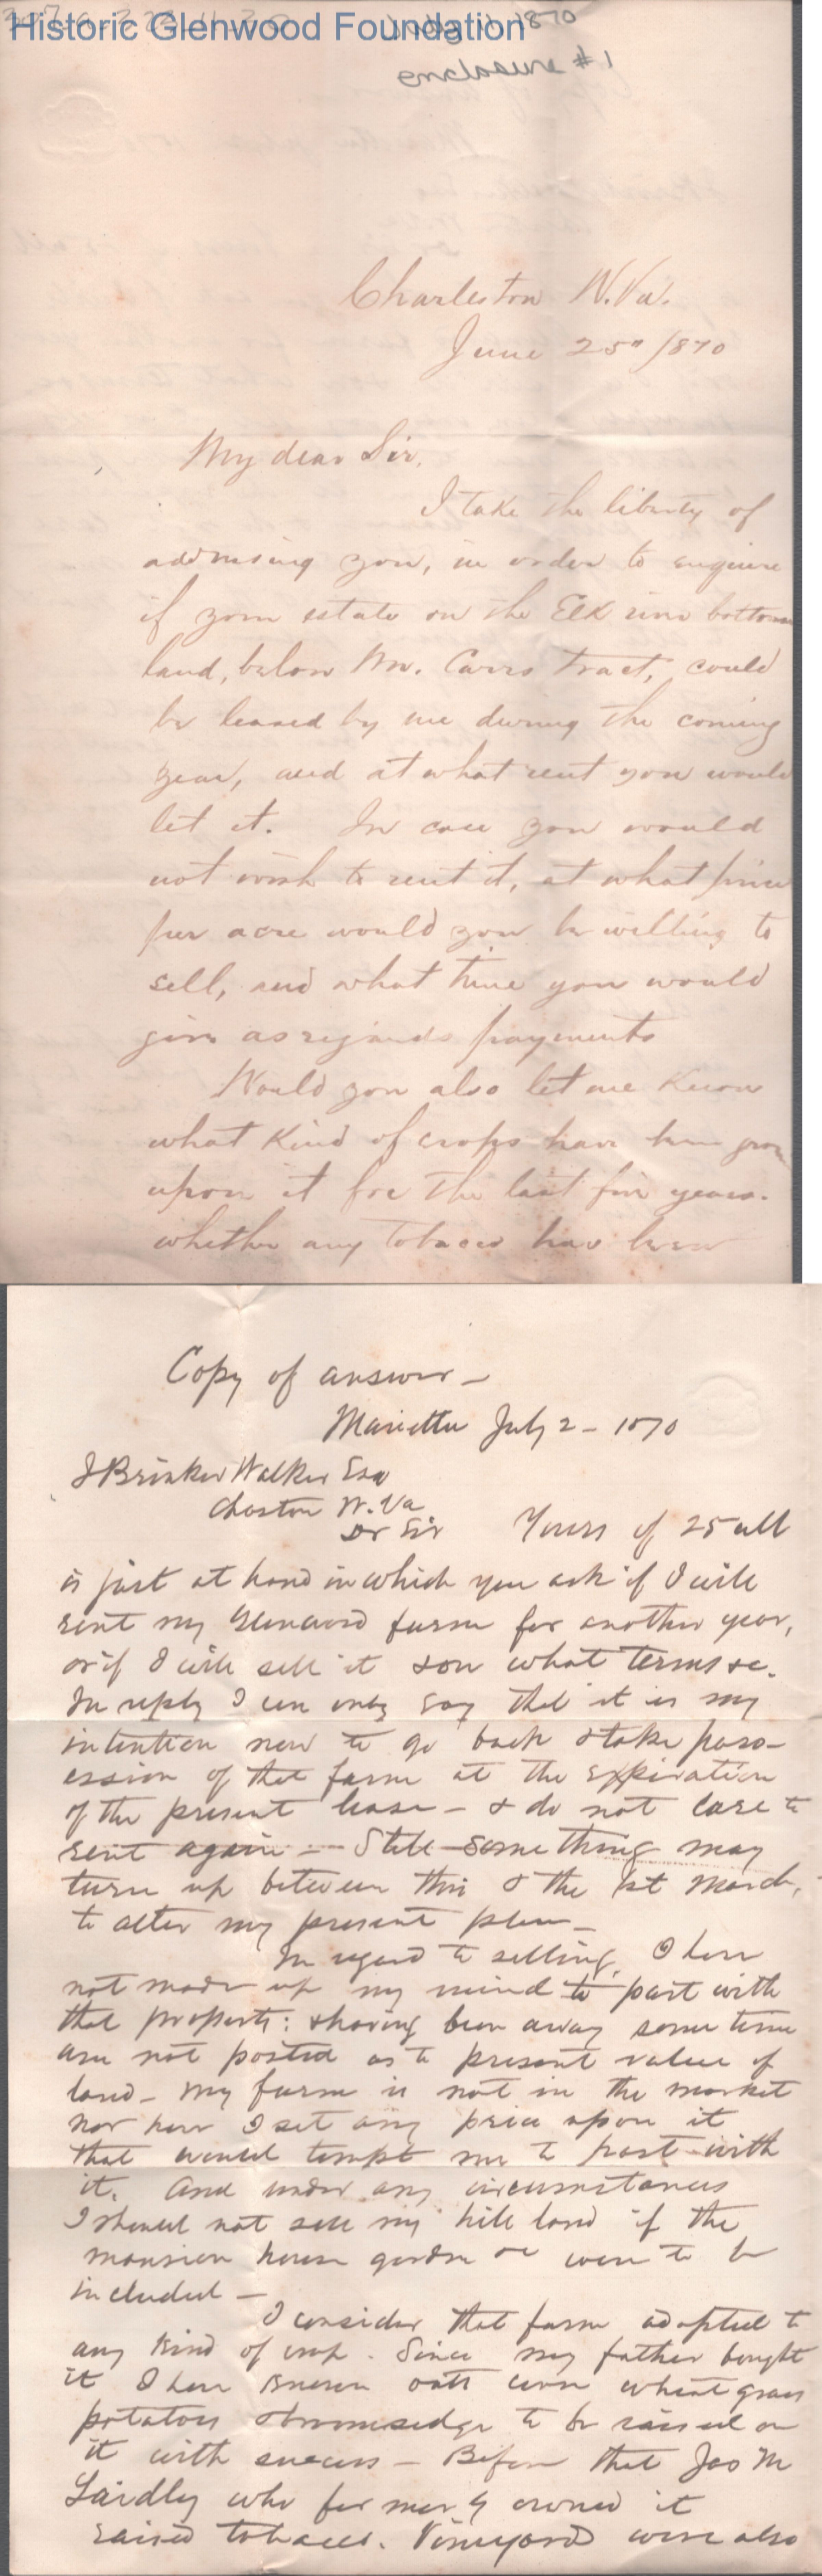 Historic Glenwood Foundation
1870
enclosure #1
Charleston W.Va.
June 25" 1870
My dear Sir,
I take the liberty of
addressing you, in order to enquire
if your estate on the Elk river bottom
land, below Mr. Carrs tract, could
be leased by me during the coming
year, and at what rent you would
let it. In case you would
not wish to rent it, at what price
per acre would you be willing to
sell, and what time you would
give as regards payments
Would you also let me know
what kind of crops have been grown
upon it for the last five years.
whether any tobacco has been
Copy of answer —
Marietta July 2 - 1870
J Brisker Walker Esq
Chaston W.Va
Dr Sir Yours of 25 ult
is just at hand in which you ask if I will
rent my Glenwood farm for another year,
or if I will sell it & on what terms &c.
In reply I can only say that it is my
intention now to go back & take poss-
ession of that farm at the expiration
of the present lease - & do not care to
rent again — Still something may
turn up between this & the 1st March,
to alter my present plan —
In regard to selling, I have
not made up my mind to part with
that property: & having been away some time
am not posted as to present value of
land - my farm is not in the market
nor have I set any price upon it
that would tempt me to part with
it. And under any circumstances
I should not sell my hill land if the
mansion house garden &c were to be
included —
I consider that farm adapted to
any kind of crop. Since my father bought
it I have known oats corn wheat grass
potatoes & broomsedge to be raised on
it with success — Before that Jas M
Laidley who formerly owned it
raised tobacco. Vineyards were also